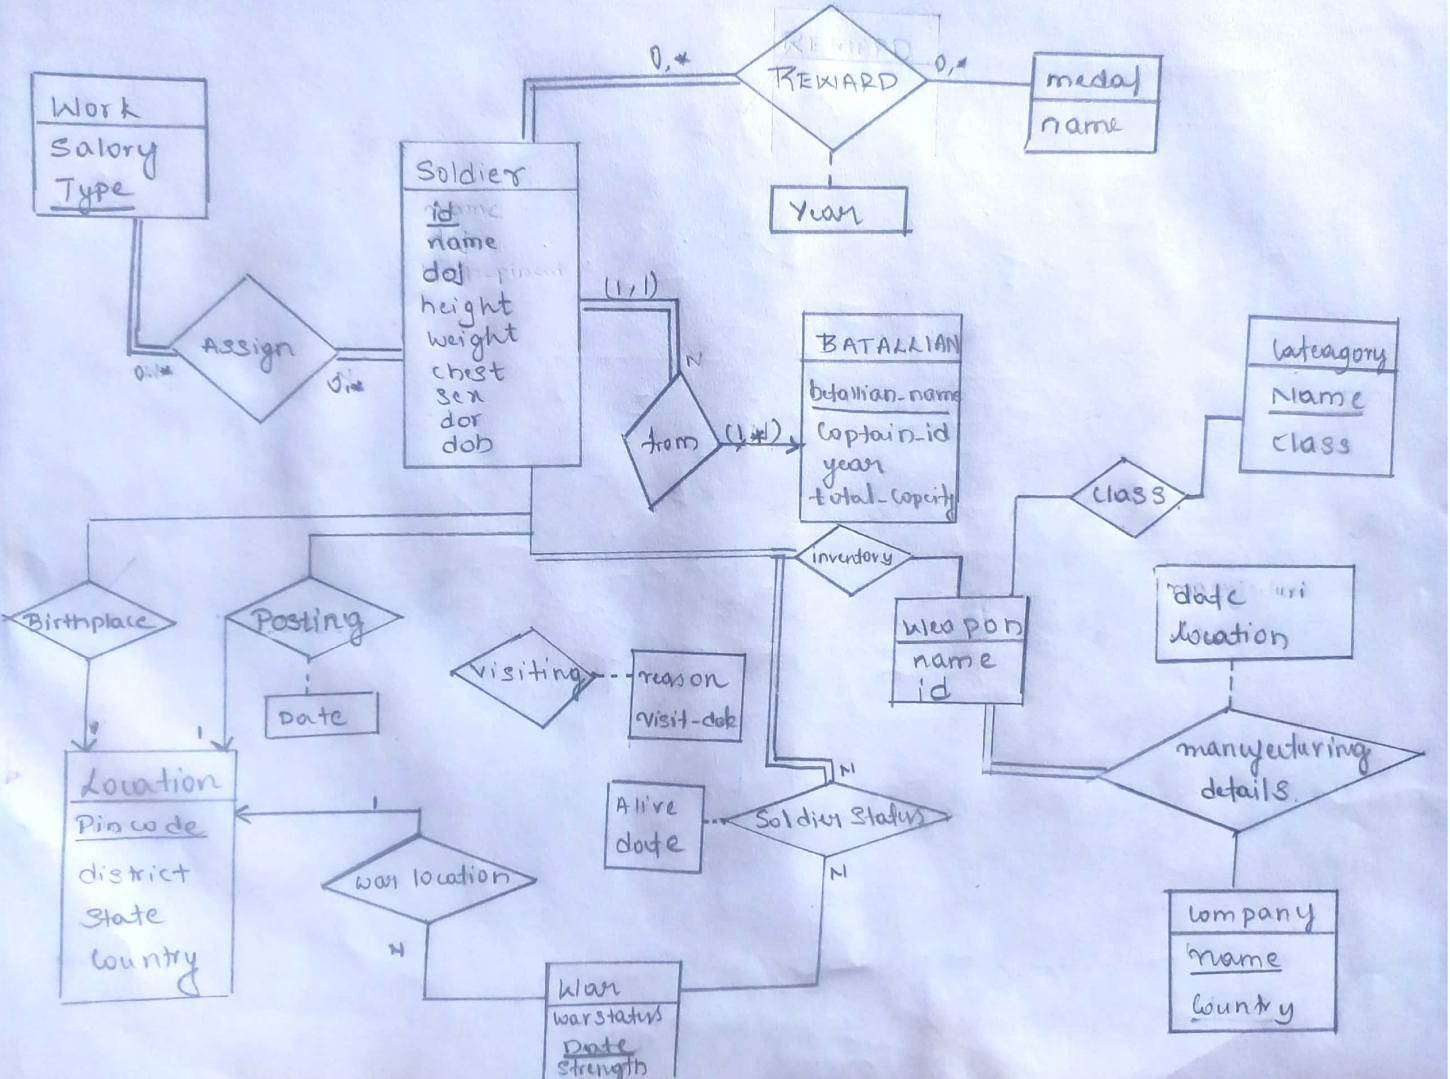 REWARD
0,*
0,*
REWARD
medal
name
Year
Work
Salory
Type
Assign
0..*
0..*
Soldier
id
name
doj
height
weight
chest
sex
dor
dob
(1,1)
N
from
(1,*)
BATALLIAN
betallian-name
Coptain-id
year
total-Copcity
Cateagory
Name
Class
Class
inventory
Weapon
name
id
date
location
manufecturing
details.
Company
name
Country
Birthplace
Posting
Date
1
Visiting
reason
Visit-date
Location
Pincode
district
State
Country
1
war location
N
Alive
date
Soldier Status
N
N
War
warstatus
Date
Strength